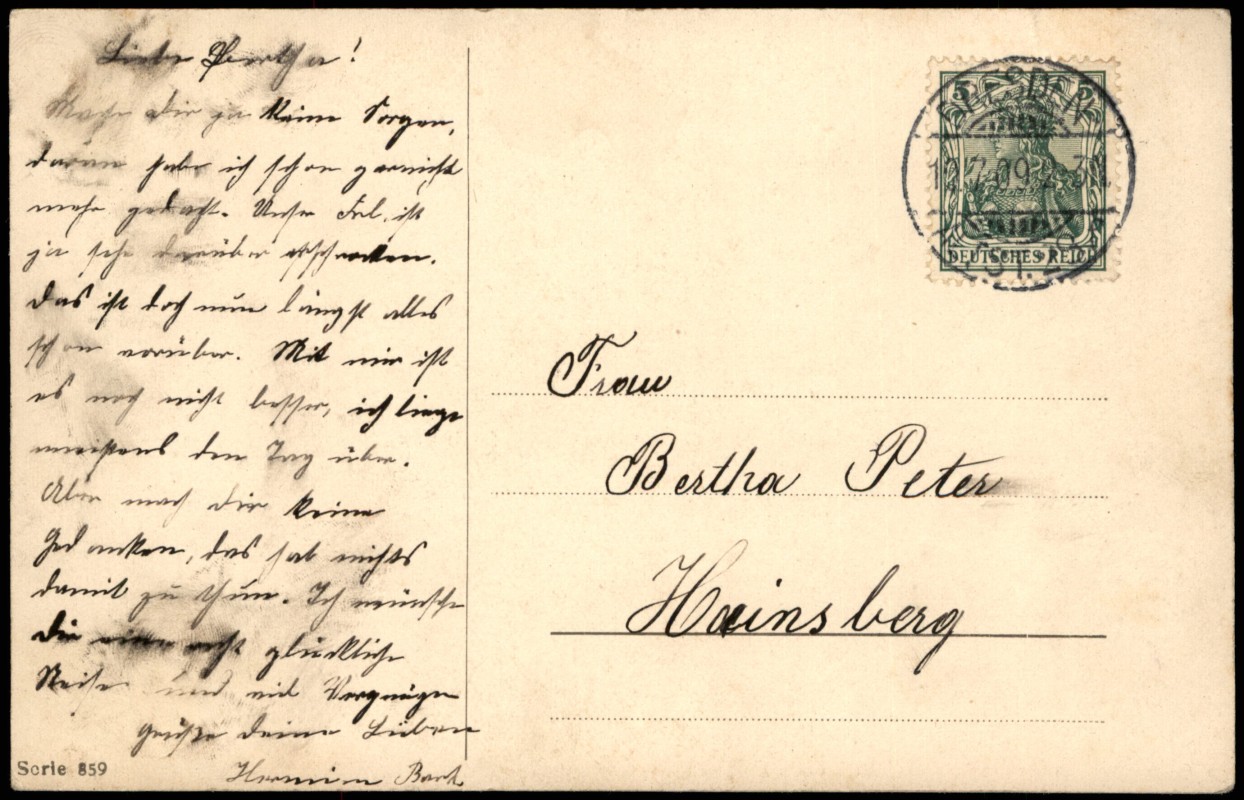 Liebe Bertha!
Mache dir ja keine Sorgen,
daran habe ich schon garnicht
mehr gedacht. Unser Frl. ist
ja sehr darüber erschrocken.
das ist doch nun längst alles
schon vorüber. Mit mir ist
es noch nicht besser, ich liege
meistens den Tag über.
Aber mach dir keine
Gedanken, das hat nichts
damit zu thun. Ich wünsche
dir eine recht glückliche
Reise und viel Vergnügen
grüße deine Lieben
Serie 859
5 5
DRESDEN
09
DEUTSCHES REICH
Frau
Bertha Peter
Hainsberg